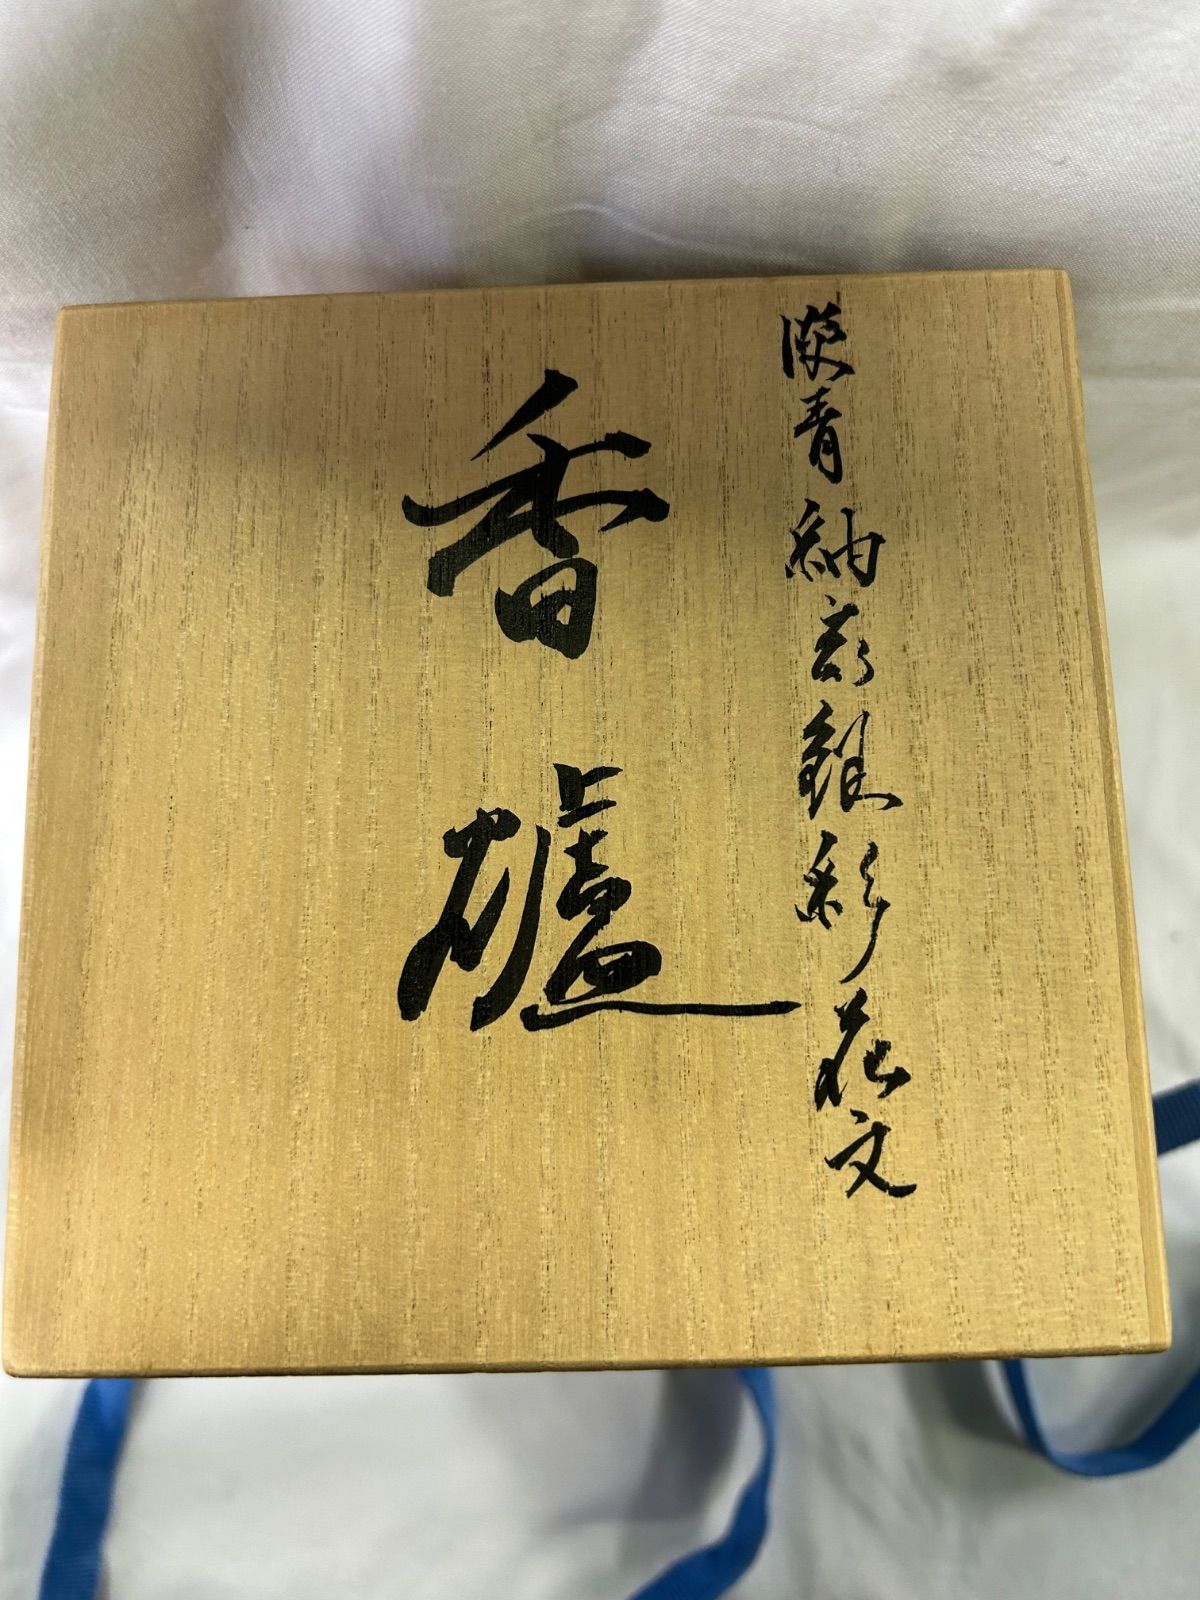 淡青釉裏銀彩花文
香爐